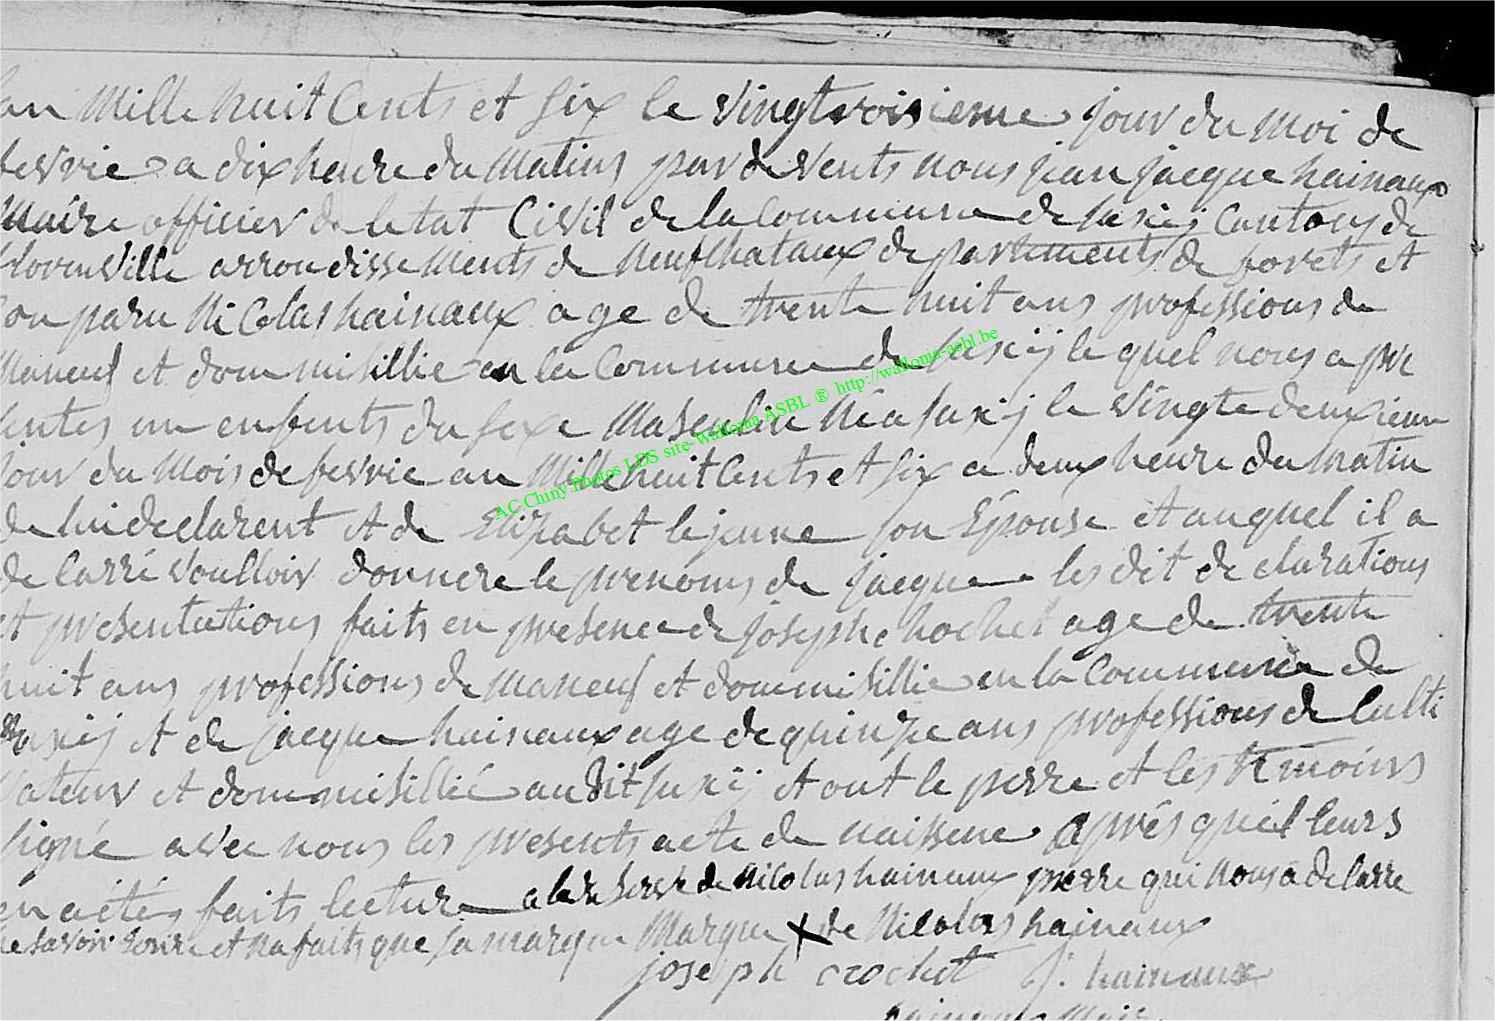 an Mille huit Cents et six le vingtroisieme jour du Moi de
fevrie a dix heure du Matins par de vents nous jean jacque hainaux
Maire officier de letat Civil de la Commune de jaxiij Cantons de
florenville arrondissements de Neufchataux departements de forets et
Con paru Nicolas hainaux age de trente huit ans professions de
Maneuf et dommisillie en la Commune de jaxiij le quel nous a pre
sentes un enfents du sexe Masculin Né a jaxiij le vingte deuxieme
jour du Mois de fevrie an Mille huit Cents et six a deux heure du matin
de lui declarent et de Elizabet lejeune son Epouse et auquel il a
de Carré voulloir donnere le prenoms de jacque les dit declarations
et presentations faits en presence de joseph crochet age de trente
huit ans professions de Maneuf et dommisillie en la Commune de
jaxiij et de jacque hainaux age de quinze ans professions de Culti
vateur et dommisillié audit jaxiij et ont le perre et les temoins
signé avec nous les presents acte de naissene Aprés quéil leurs
en a étés faits lecture a la reserve de Nicolas hainaux perre qui nous a de Carre
ne savoir sinne et na faits que sa marque Marque X de Nicolas hainaux
joseph crochet J. hainaux
hainaux Mair
AC Chiny Photos LDS site-Wallonia ASBL ® http://wallonia-asbl.be